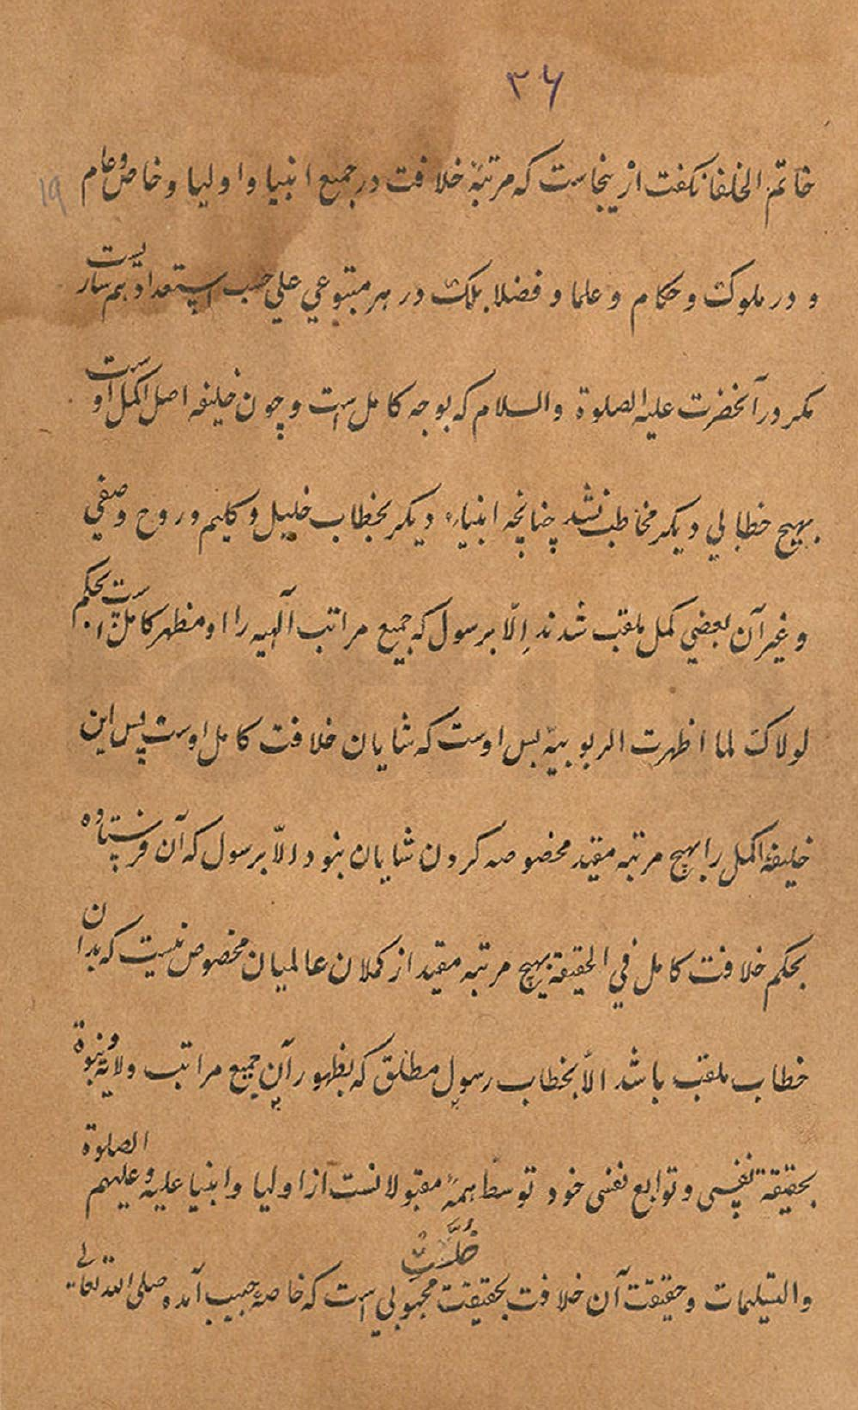 ۳۶
۱۹
خاتم الخلفا نکفت ازینجاست که مرتبهٔ خلافت در جمیع انبیا و اولیا و خاص و عام
و در ملوک و حکام و علما و فضلا بلکه در هر متبوعی علی حسب استعدادهم ساریست
مکر در آنحضرت علیه الصلوة والسلام که بوجه کامل است و چون خلیفه اصل اکمل اوست
بهیچ خطابی دیکر مخاطب نشد چنانچه انبیاء دیکر بخطاب خلیل و کلیم و روح و صفی
و غیر آن بعضی کمل ملقب شدند إلّا برسول که جمیع مراتب آلهیه را او مظهر کامل است بحکم
لولاک لما اظهرت الربوبیة پس اوست که شایان خلافت کامل اوست پس این
خلیفهٔ اکمل را بهیچ مرتبه مقید مخصوصه کردن شایان نبود الّا برسول که آن فرستاده
بحکم خلافت کامل فی الحقیقة بهیچ مرتبه مقید از کملان عالمیان مخصوص نیست که بدان
خطاب ملقب باشد الّا بخطاب رسول مطلق که بظهور آن جمیع مراتب ولایة و نبوة
بحقیقة نفسی و توابع نفسی خود توسط همهٔ مقبولانست از اولیا و انبیا علیه و علیهم الصلوة
والتسلیمات و حقیقت آن خلافت بحقیقت خُلَّتِ محبوبی است که خاصهٔ حبیب آمده صلی الله تعالی